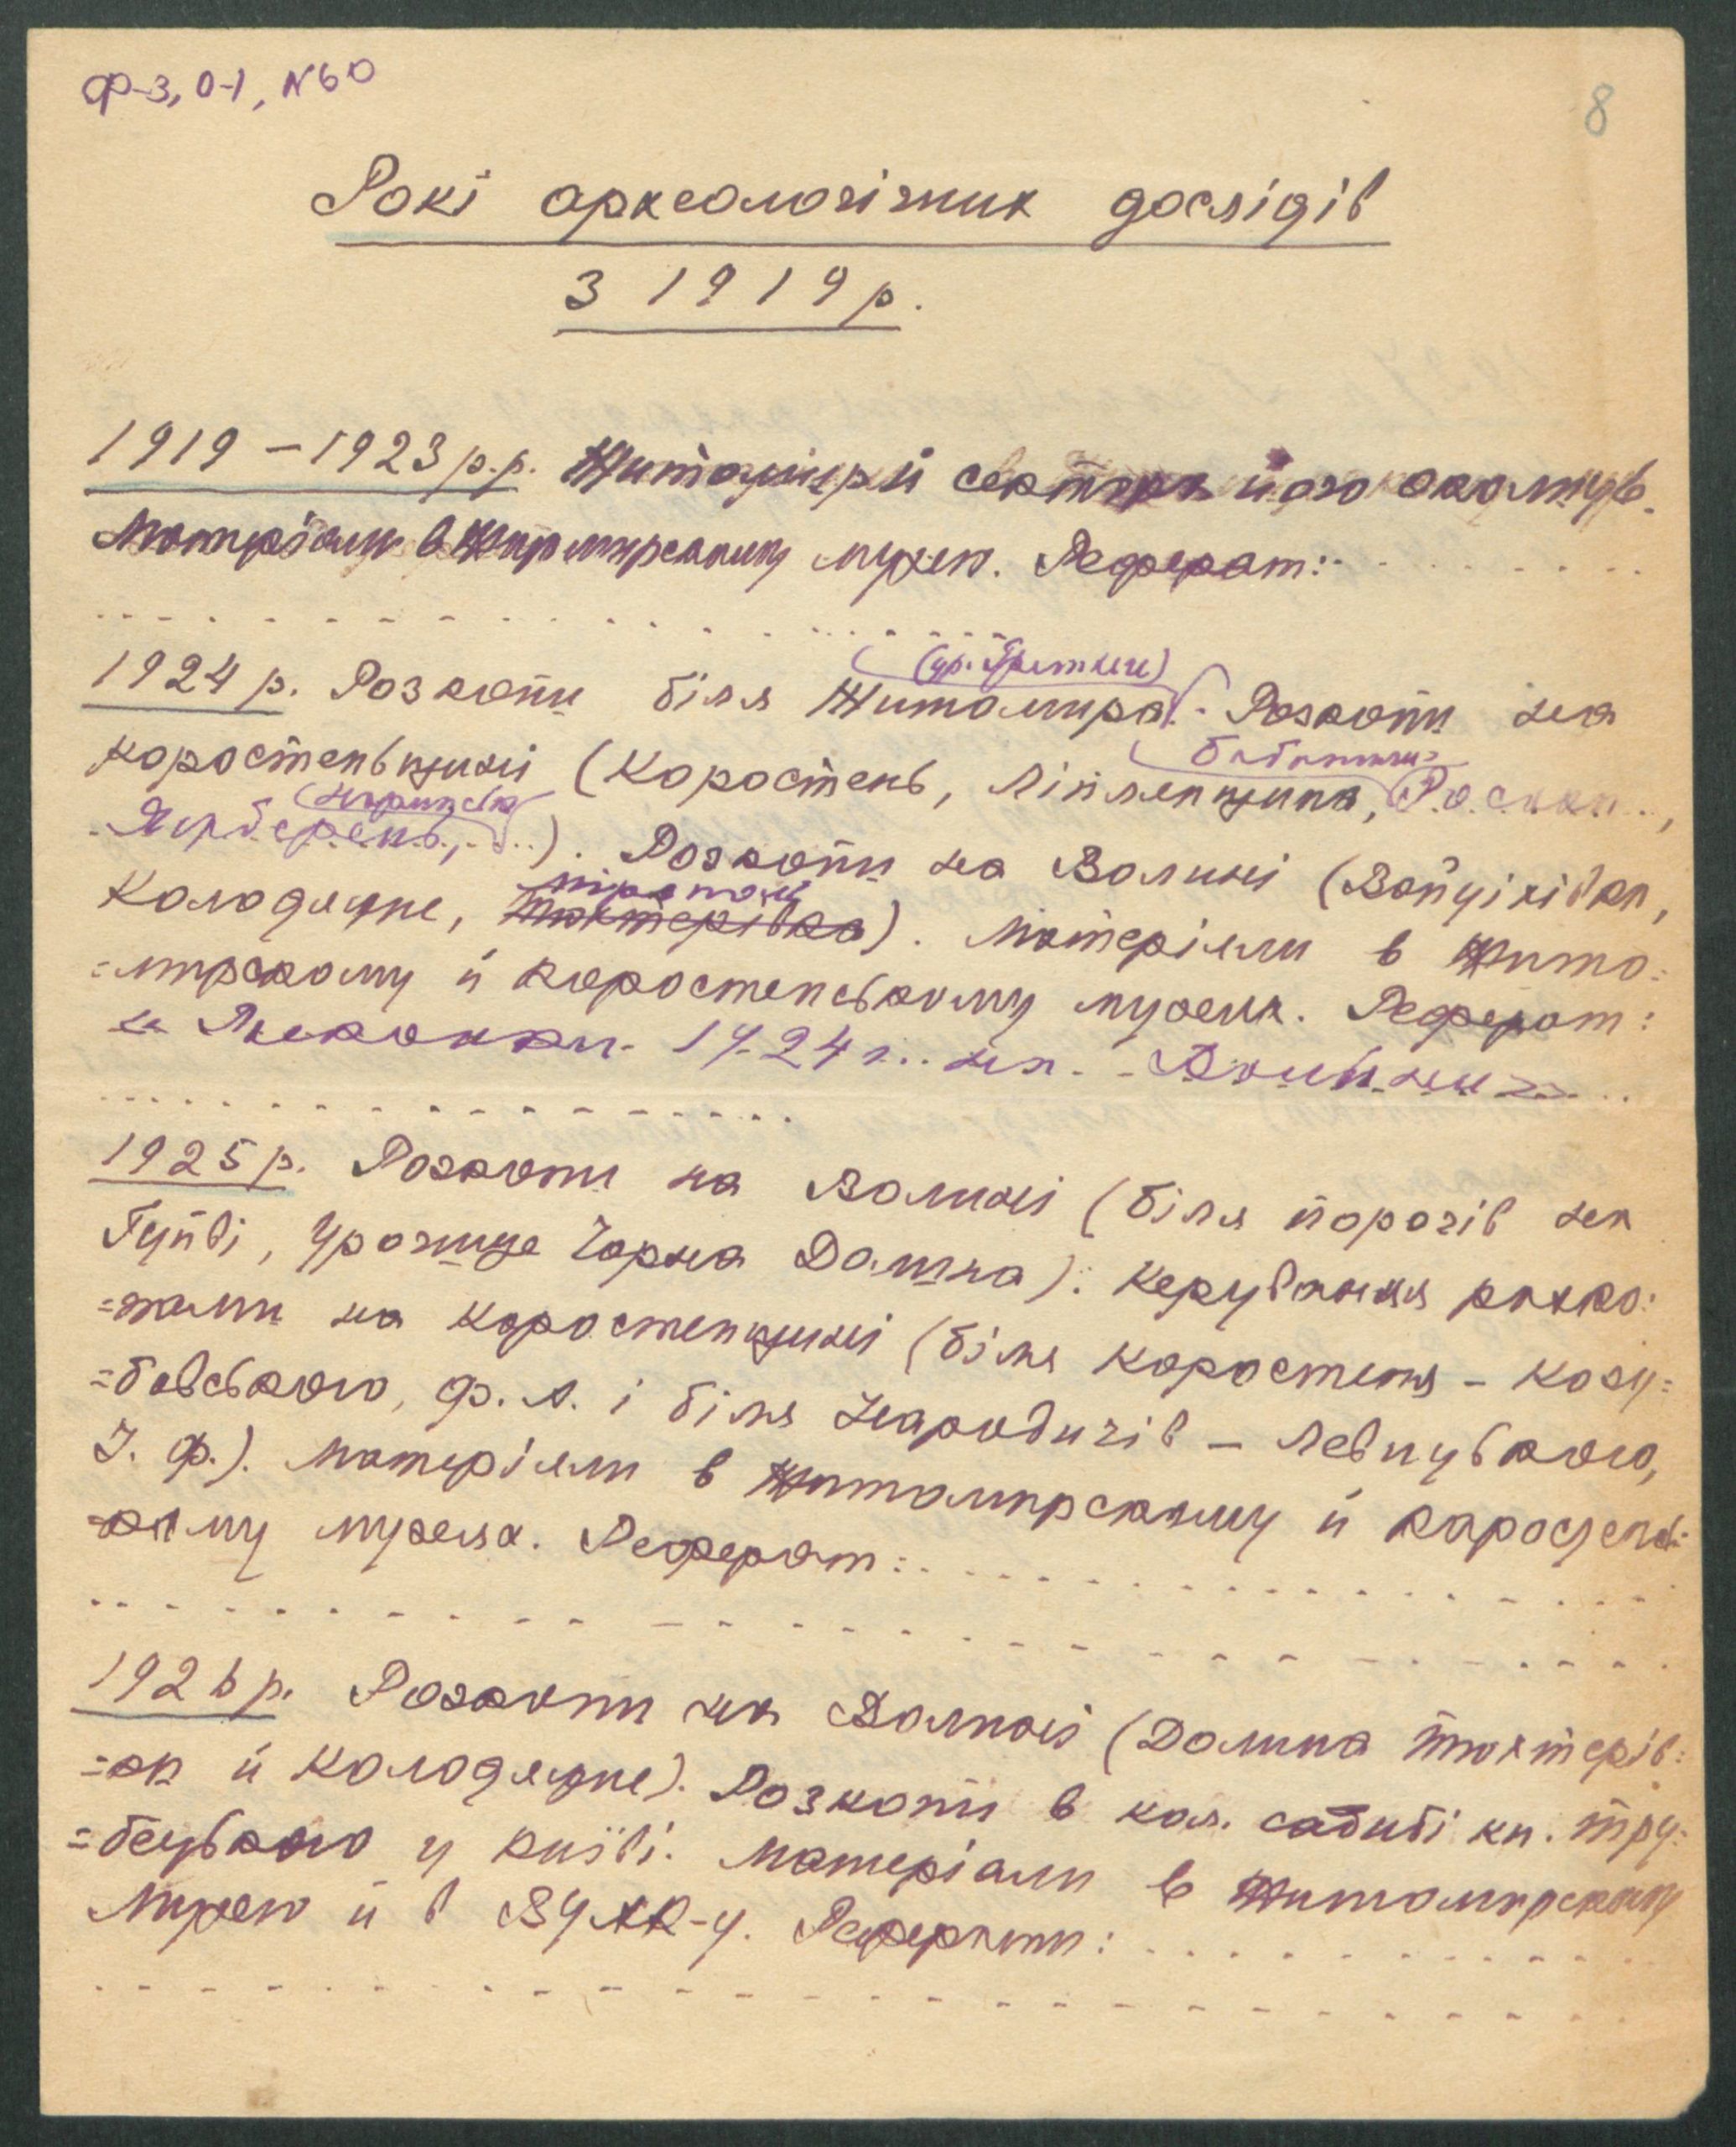 Ф-3, О-1, №60
8
Рокі археологічних дослідів
з 1919 р.
1919 – 1923 р.р. Житомир й його околиць.
Матеріали в Житомирському музею. Реферат: . . . . . . . .
1924 р. Розкопи біля Житомира. Розкопи на
Коростеньщині (Коростень,
). Розкопи на Волині (Войцехівка,
Колодяжне, Тюхтерівка). Матеріяли в Жито=
=мирському й Коростенському музеях. Реферат:
« Раскопки 1924 г. на Волыни »
1925 р. Розкопи на Волині (біля порогів на
Гуйві, Урочище Чорна Долина). Керування розко=
=пами на Коростенщині (біля Коростеня – Козу=
=бовського, Ф. А. і біля Народичів – Левицького,
І. Ф.). Матеріяли в Житомирському й Коростень=
=кому музеях. Реферат: . . . . . . . .
1926 р. Розкопи на Волині (Долина Тюхтерів=
=ка й Колодяжне). Розкопи в кол. садибі кн. Тру=
=бецького у Київі. Матеріали в Житомирському
Музею й в ВУАК-у. Реферати: . . . . . . . .